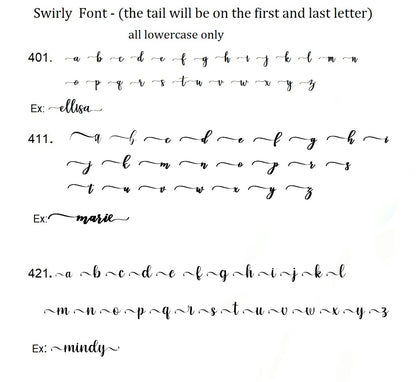 Swirly Font - (the tail will be on the first and last letter)
all lowercase only
401. a b c d e f g h i j k l m n
o p q r s t u v w x y z
Ex: ellisa
411. a b c d e f g h i
j k m n o p r s
t u v w x y z
Ex: marie
421. a b c d e f g h i j k l
m n o p q r s t u v w x y z
Ex: mindy